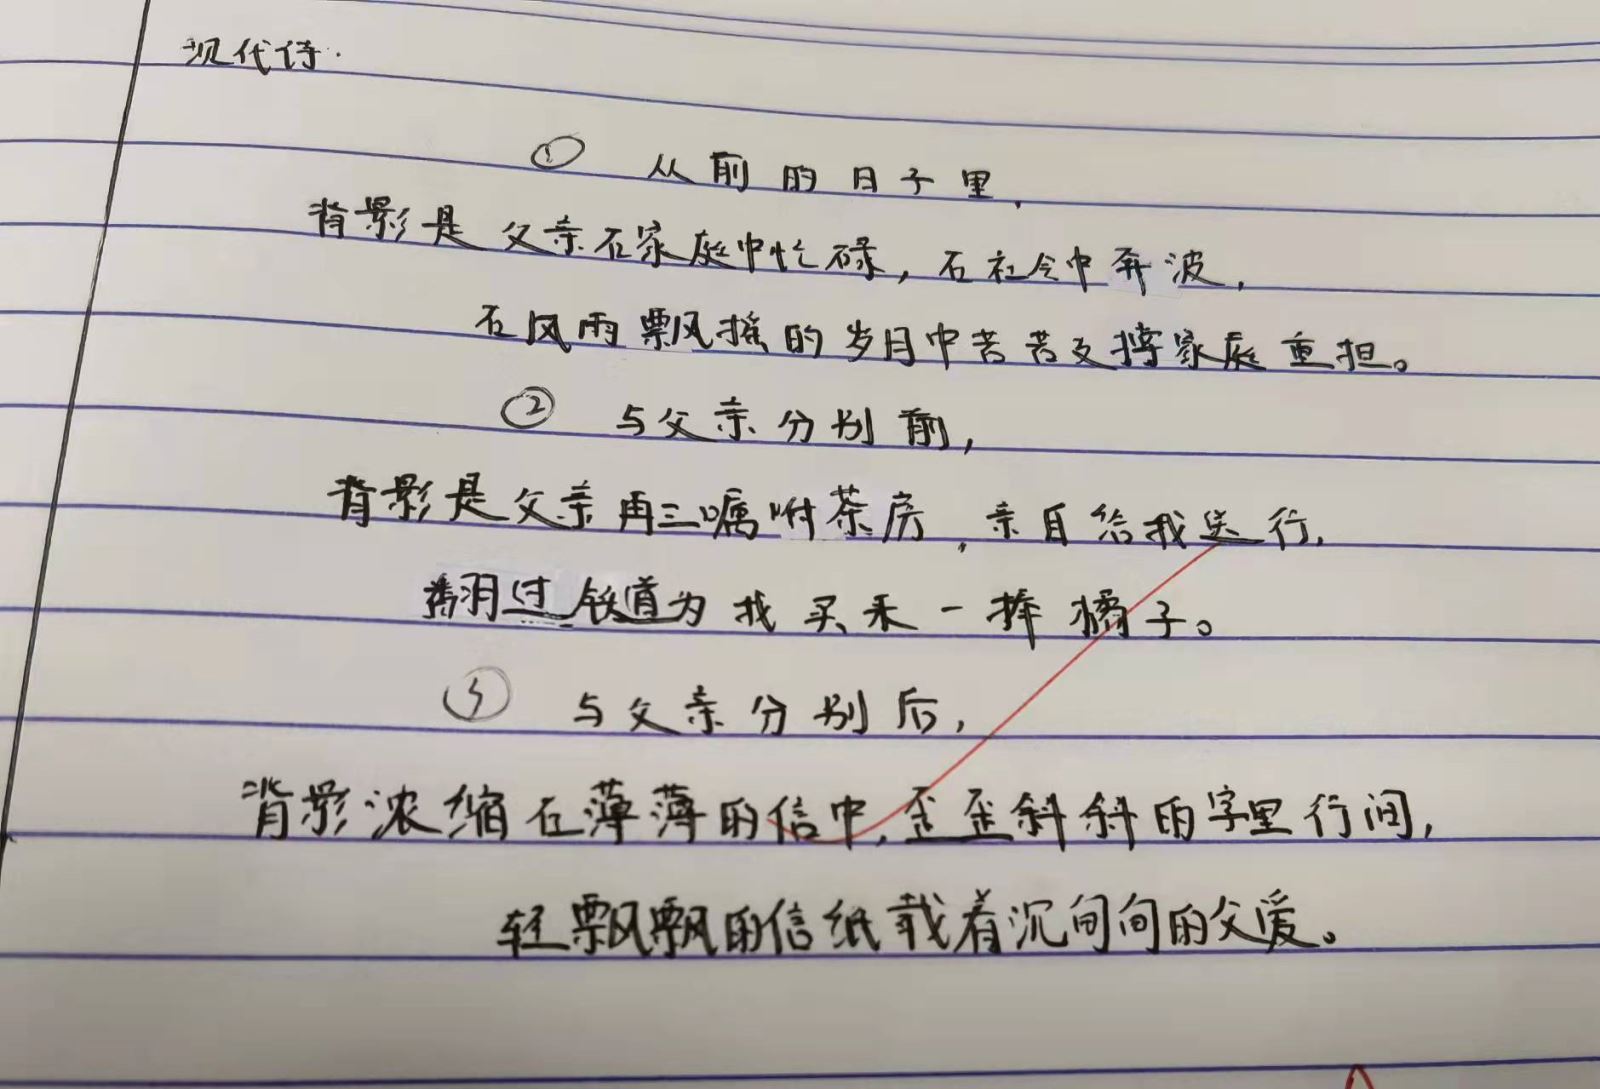 现代诗.
① 从前的日子里,
背影是父亲在家庭中忙碌,在社会中奔波,
在风雨飘摇的岁月中苦苦支撑家庭重担。
② 与父亲分别前,
背影是父亲再三嘱咐茶房,亲自给我送行,
翻过铁道为我买来一捧橘子。
③ 与父亲分别后,
背影浓缩在薄薄的信中,歪歪斜斜的字里行间,
轻飘飘的信纸载着沉甸甸的父爱。